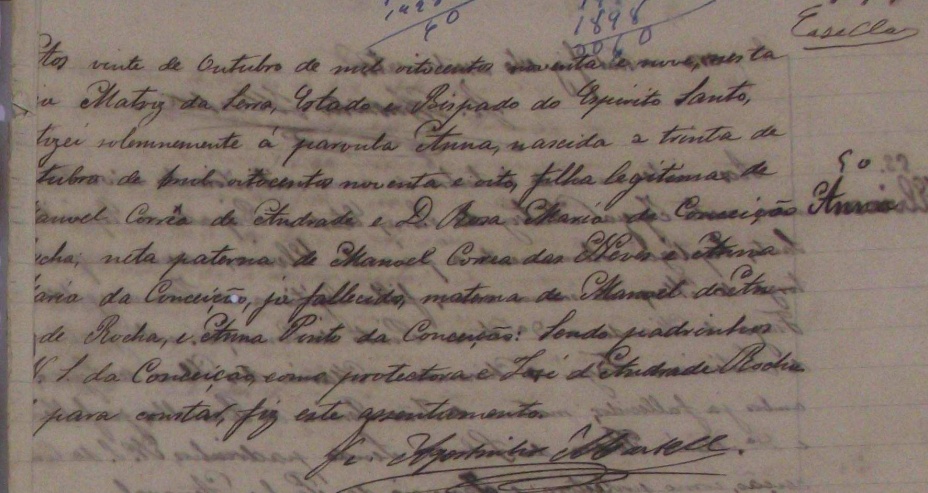 1898
60
Casella
tos vinte de Outubro de mil oitocentos noventa e nove, nesta
Matriz da Serra, Estado e Bispado do Espirito Santo,
tizei solemnemente á parvula Anna, nascida a trinta de
tubro de mil oitocentos noventa e oito, filha legitima de
anoel Corrêa de Andrade e D. Rosa Maria da Conceição
cha; neta paterna de Manoel Correa das Neves e Anna
aria da Conceição, já fallecido, materna de Manoel de An-
de Rocha, e Anna Pinto da Conceição: Sendo padrinhos
S. da Conceição, como protectora e José d'Andrade Rocha
para constar, fiz este assentamento
5o
Anna